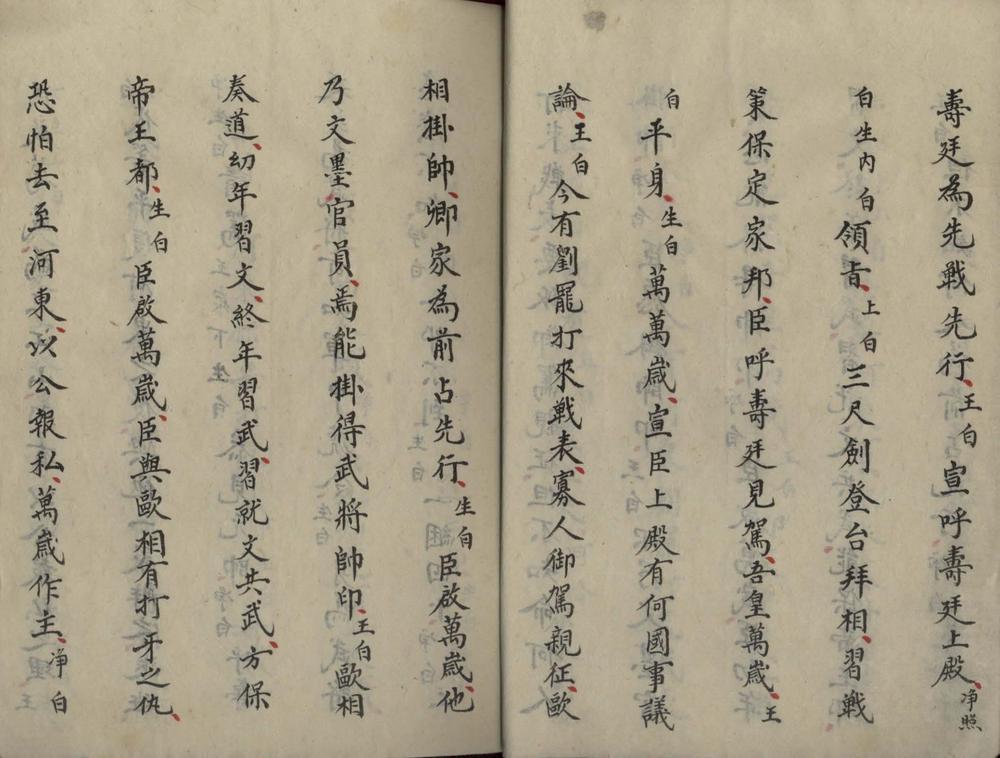 壽廷為先戰先行、王白宣呼壽廷上殿、净照
白生內白領旨、上白三尺劍登台拜相、習戰
策保定家邦、臣呼壽廷見駕、吾皇萬歲、王
白平身、生白萬萬歲、宣臣上殿有何國事議
論、王白今有劉龍打來戰表、寡人御駕親征、歐
相掛帥、卿家為前占先行、生白臣啟萬歲、他
乃文墨官員、焉能掛得武將帥印、王白歐相
奏道、幻年習文、終年習武、習就文共武、方保
帝王都、生白臣啟萬歲、臣與歐相有打牙之仇、
恐怕去至河東、以公報私、萬歲作主、净白